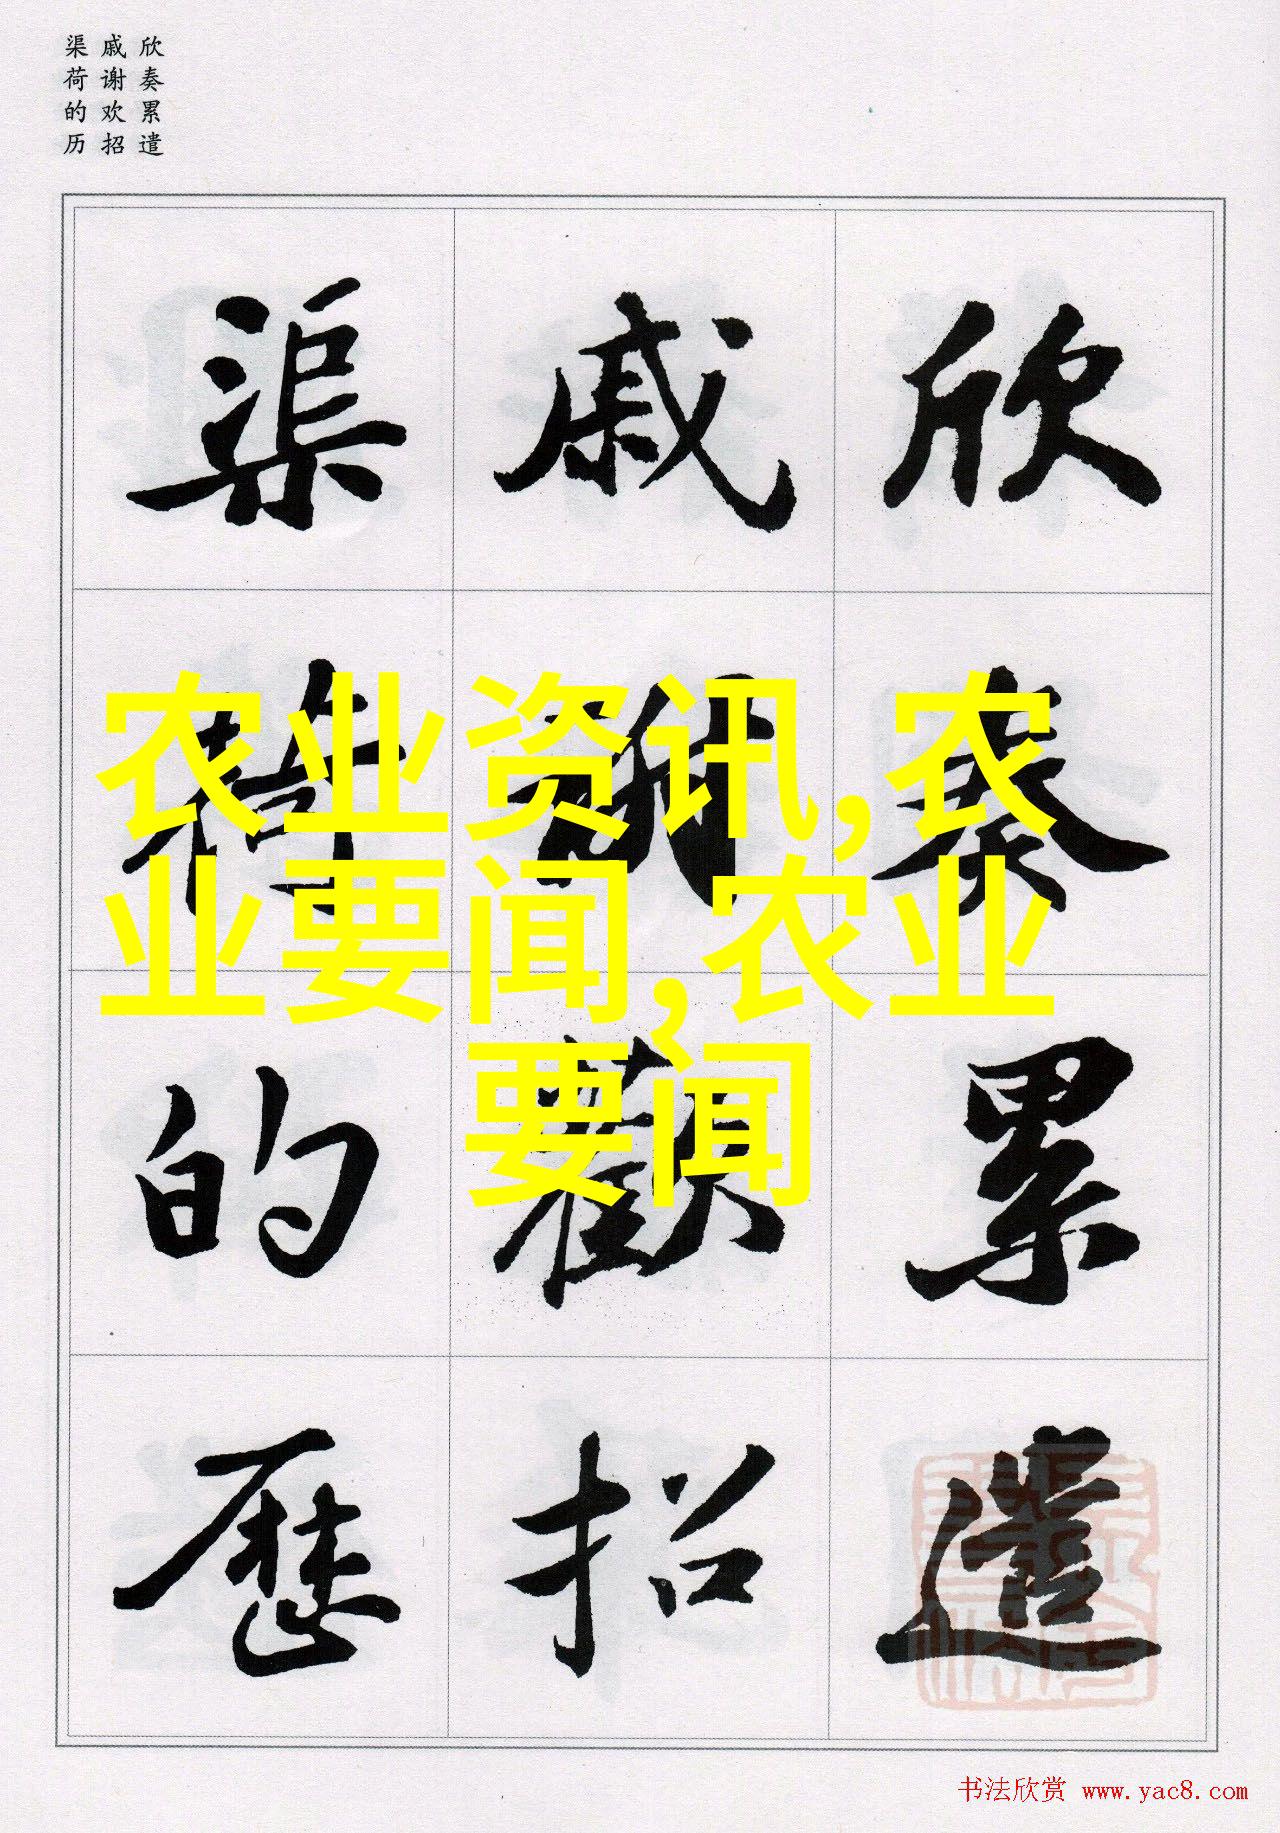 欣奏累遣
戚谢欢招
渠荷的历
欣奏累遣
戚謝歡招
渠荷的歷
农业资讯,农
业要闻,农业
要闻
书法欣赏 www.yac8.com